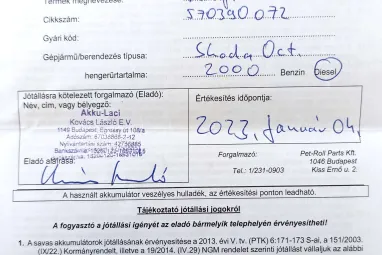 Termék megnevezése:
Cikkszám: 570390072
Gyári kód:
Gépjármű/berendezés típusa: Skoda Oct.
hengerűrtartalma: 2000 Benzin Diesel
Jótállásra kötelezett forgalmazó (Eladó):
Név, cím, vagy bélyegző:
Akku-Laci
Kovács László E.V.
1149 Budapest, Egressy út 108/a
Értékesítés időpontja:
2023. január 04.
Eladó aláírása:
Forgalmazó: Pet-Roll Parts Kft.
1046 Budapest
Tel.: 1/231-0903 Kiss Ernő u. 2.
A használt akkumulátor veszélyes hulladék, az értékesítési ponton leadható.
Tájékoztató jótállási jogokról
A fogyasztó a jótállási igényét az eladó bármelyik telephelyén érvényesítheti!
1. A savas akkumulátorok jótállásának érvényesítése a 2013. évi V. tv. (PTK) 6:171-173 §-ai, a 151/2003.
(IX/22.) Kormányrendelet, illetve a 19/2014. (IV.29) NGM rendelet szerinti jótállást vállaljuk az alábbi